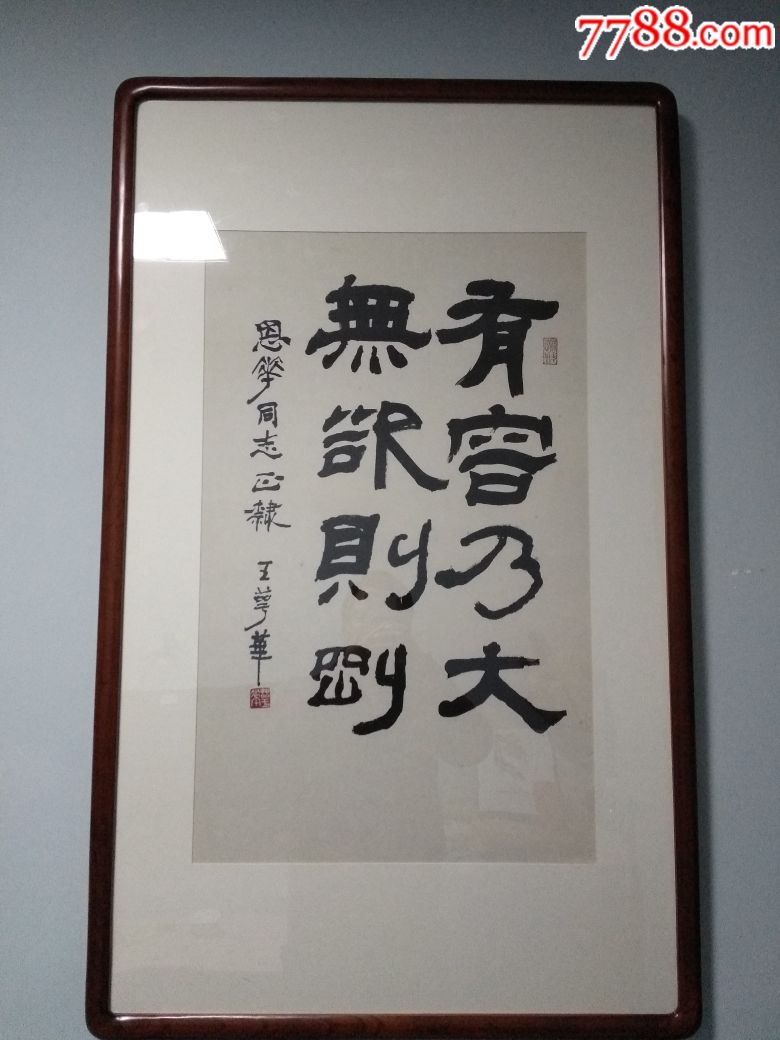 7788.com
有容乃大
無欲則剛
恩華同志正隸
王萼華